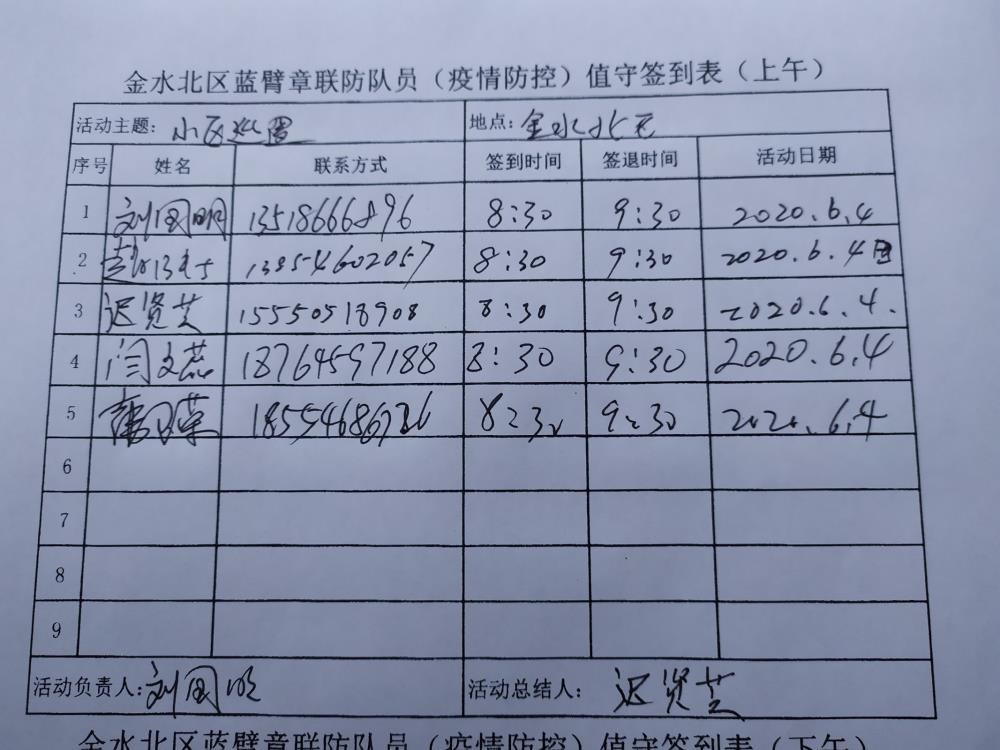 金水北区蓝臂章联防队员（疫情防控）值守签到表（上午）
活动主题：小区巡逻 地点：金水北区
序号 姓名 联系方式 签到时间 签退时间 活动日期
1 刘国明 13518666896 8:30 9:30 2020.6.4
2 13954602057 8:30 9:30 2020.6.4日
3 迟贤芝 15550518908 8:30 9:30 2020.6.4.
4 闫文燕 18764597188 8:30 9:30 2020.6.4
5 8:30 9:30 2020.6.4
6
7
8
9
活动负责人：刘国明 活动总结人：迟贤芝
金水北区蓝臂章联防队员（疫情防控）值守签到表（下午）